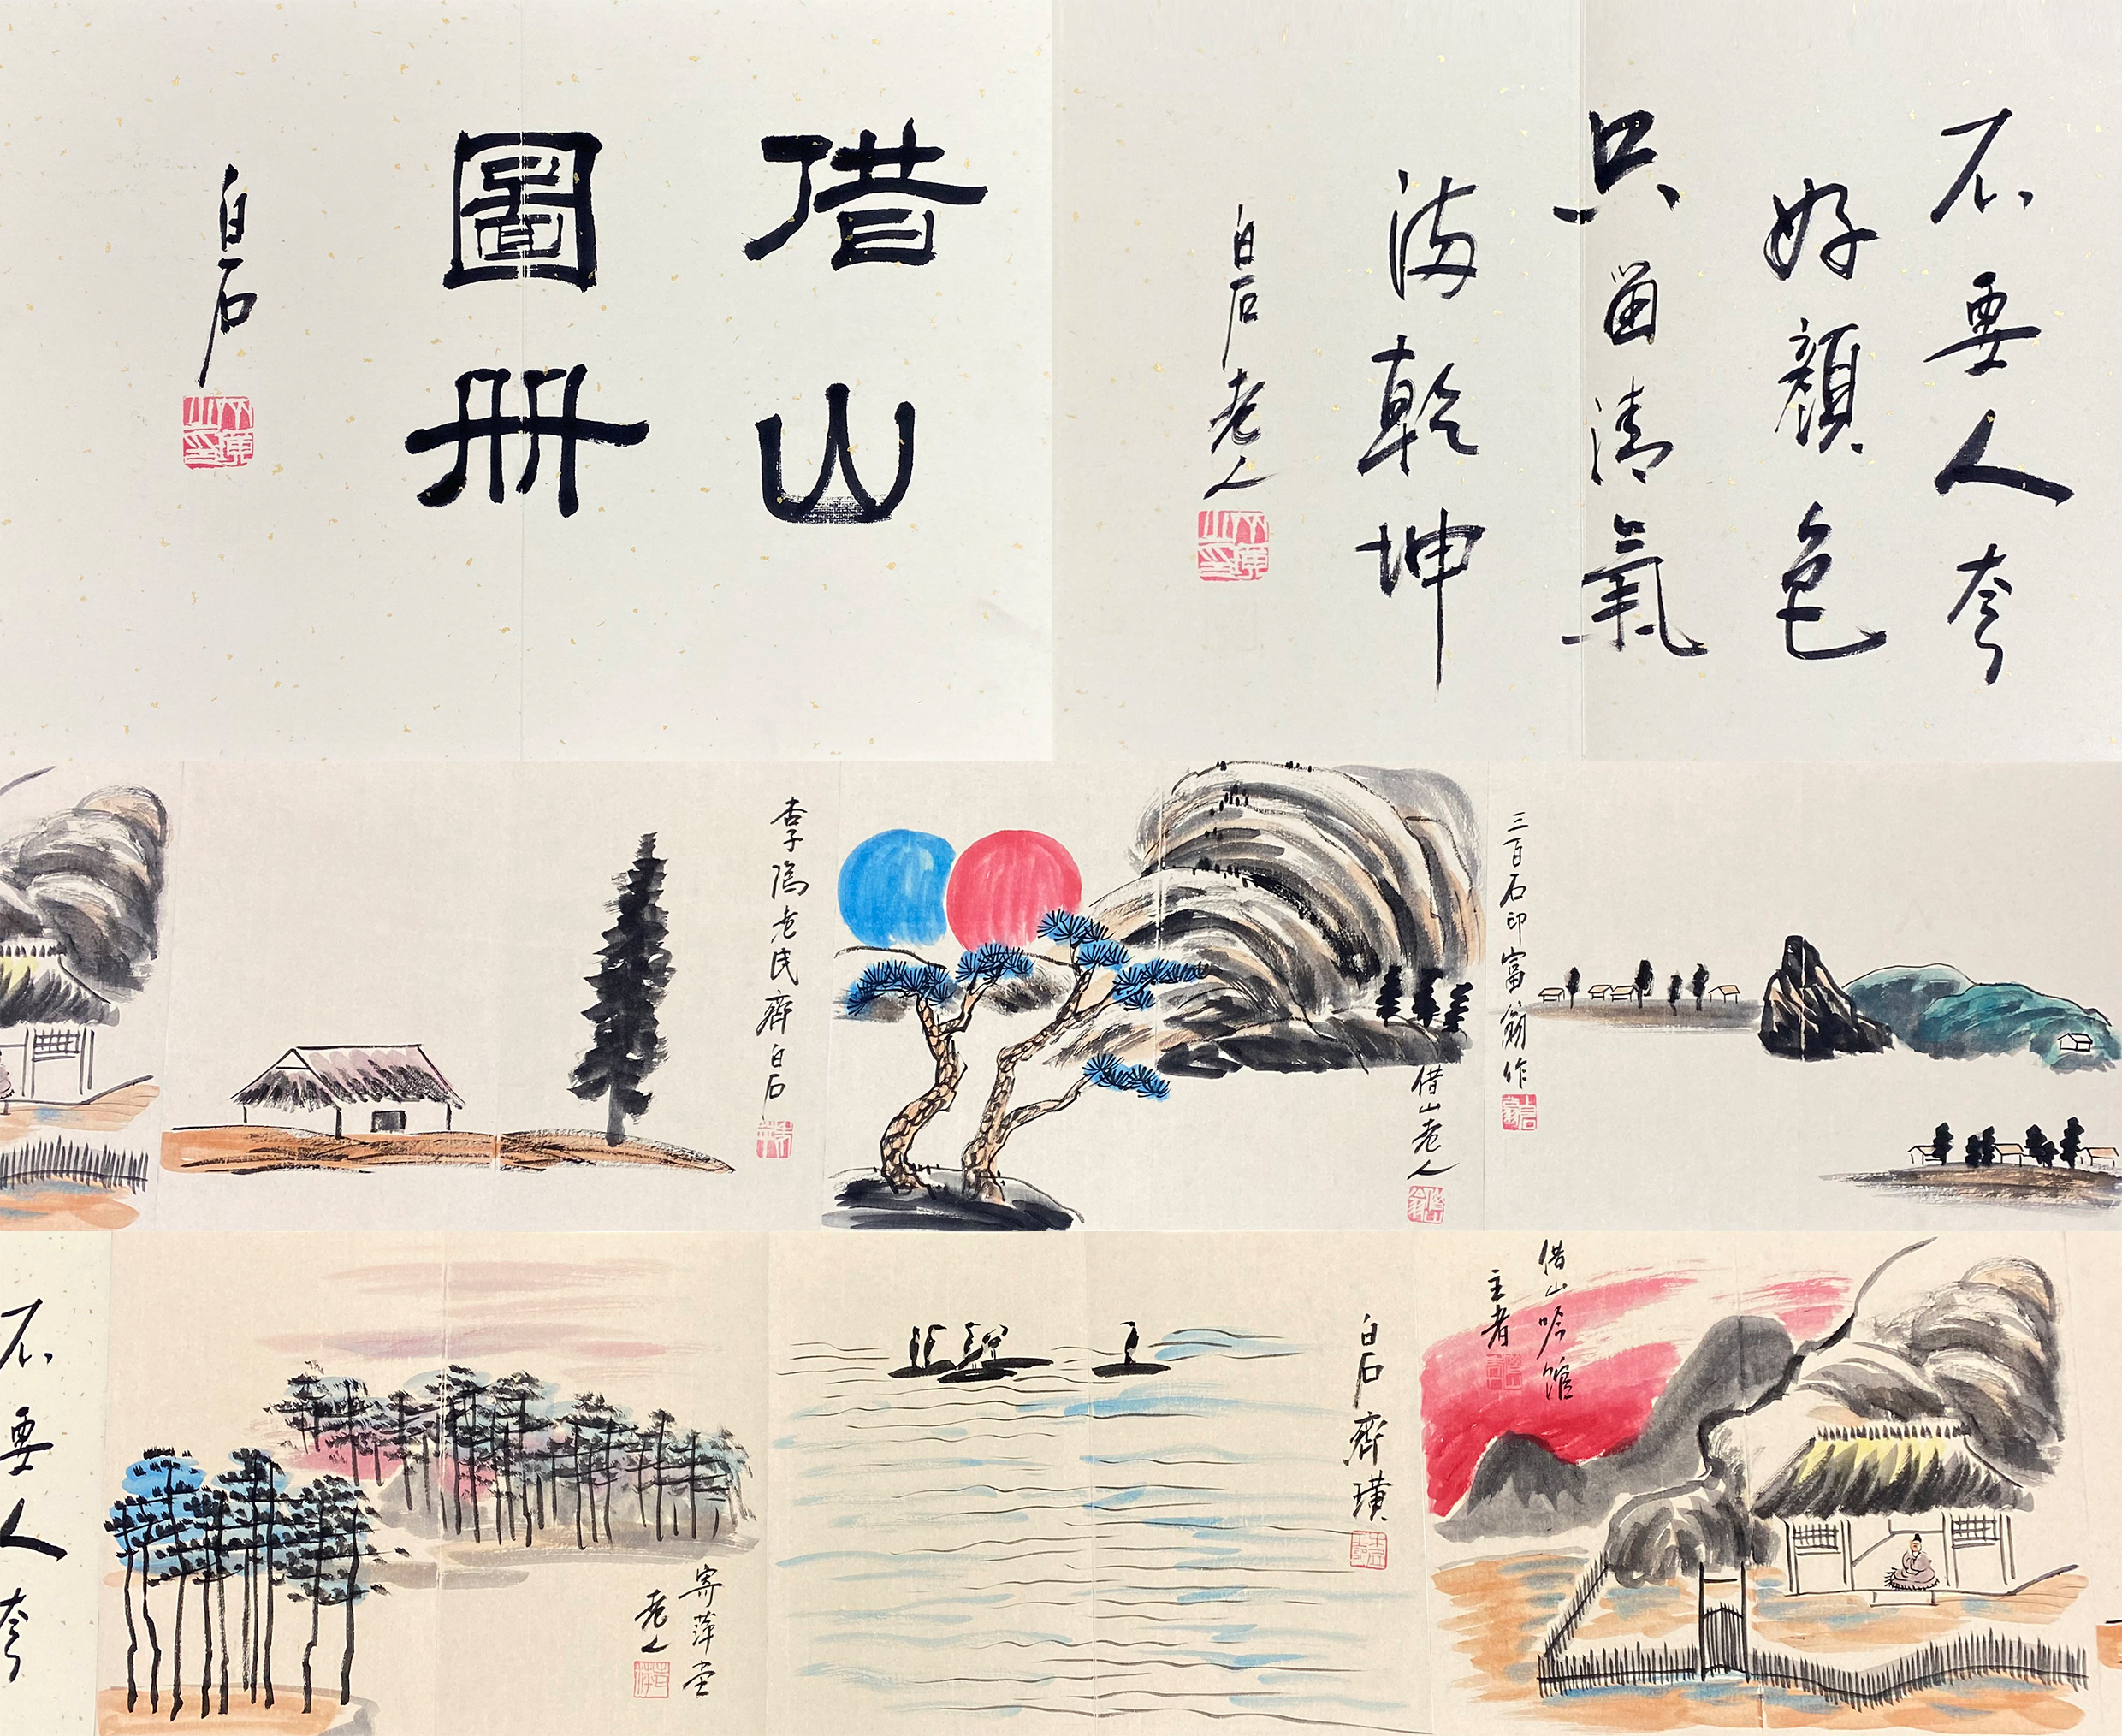 借山
圖册
白石
不要人夸
好顏色
只留清氣
满乾坤
白石老人
杏子隖老民齊白石
借山老人
三百石印富翁作
不要人夸
寄萍堂
老人
白石齊璜
借山吟馆
主者